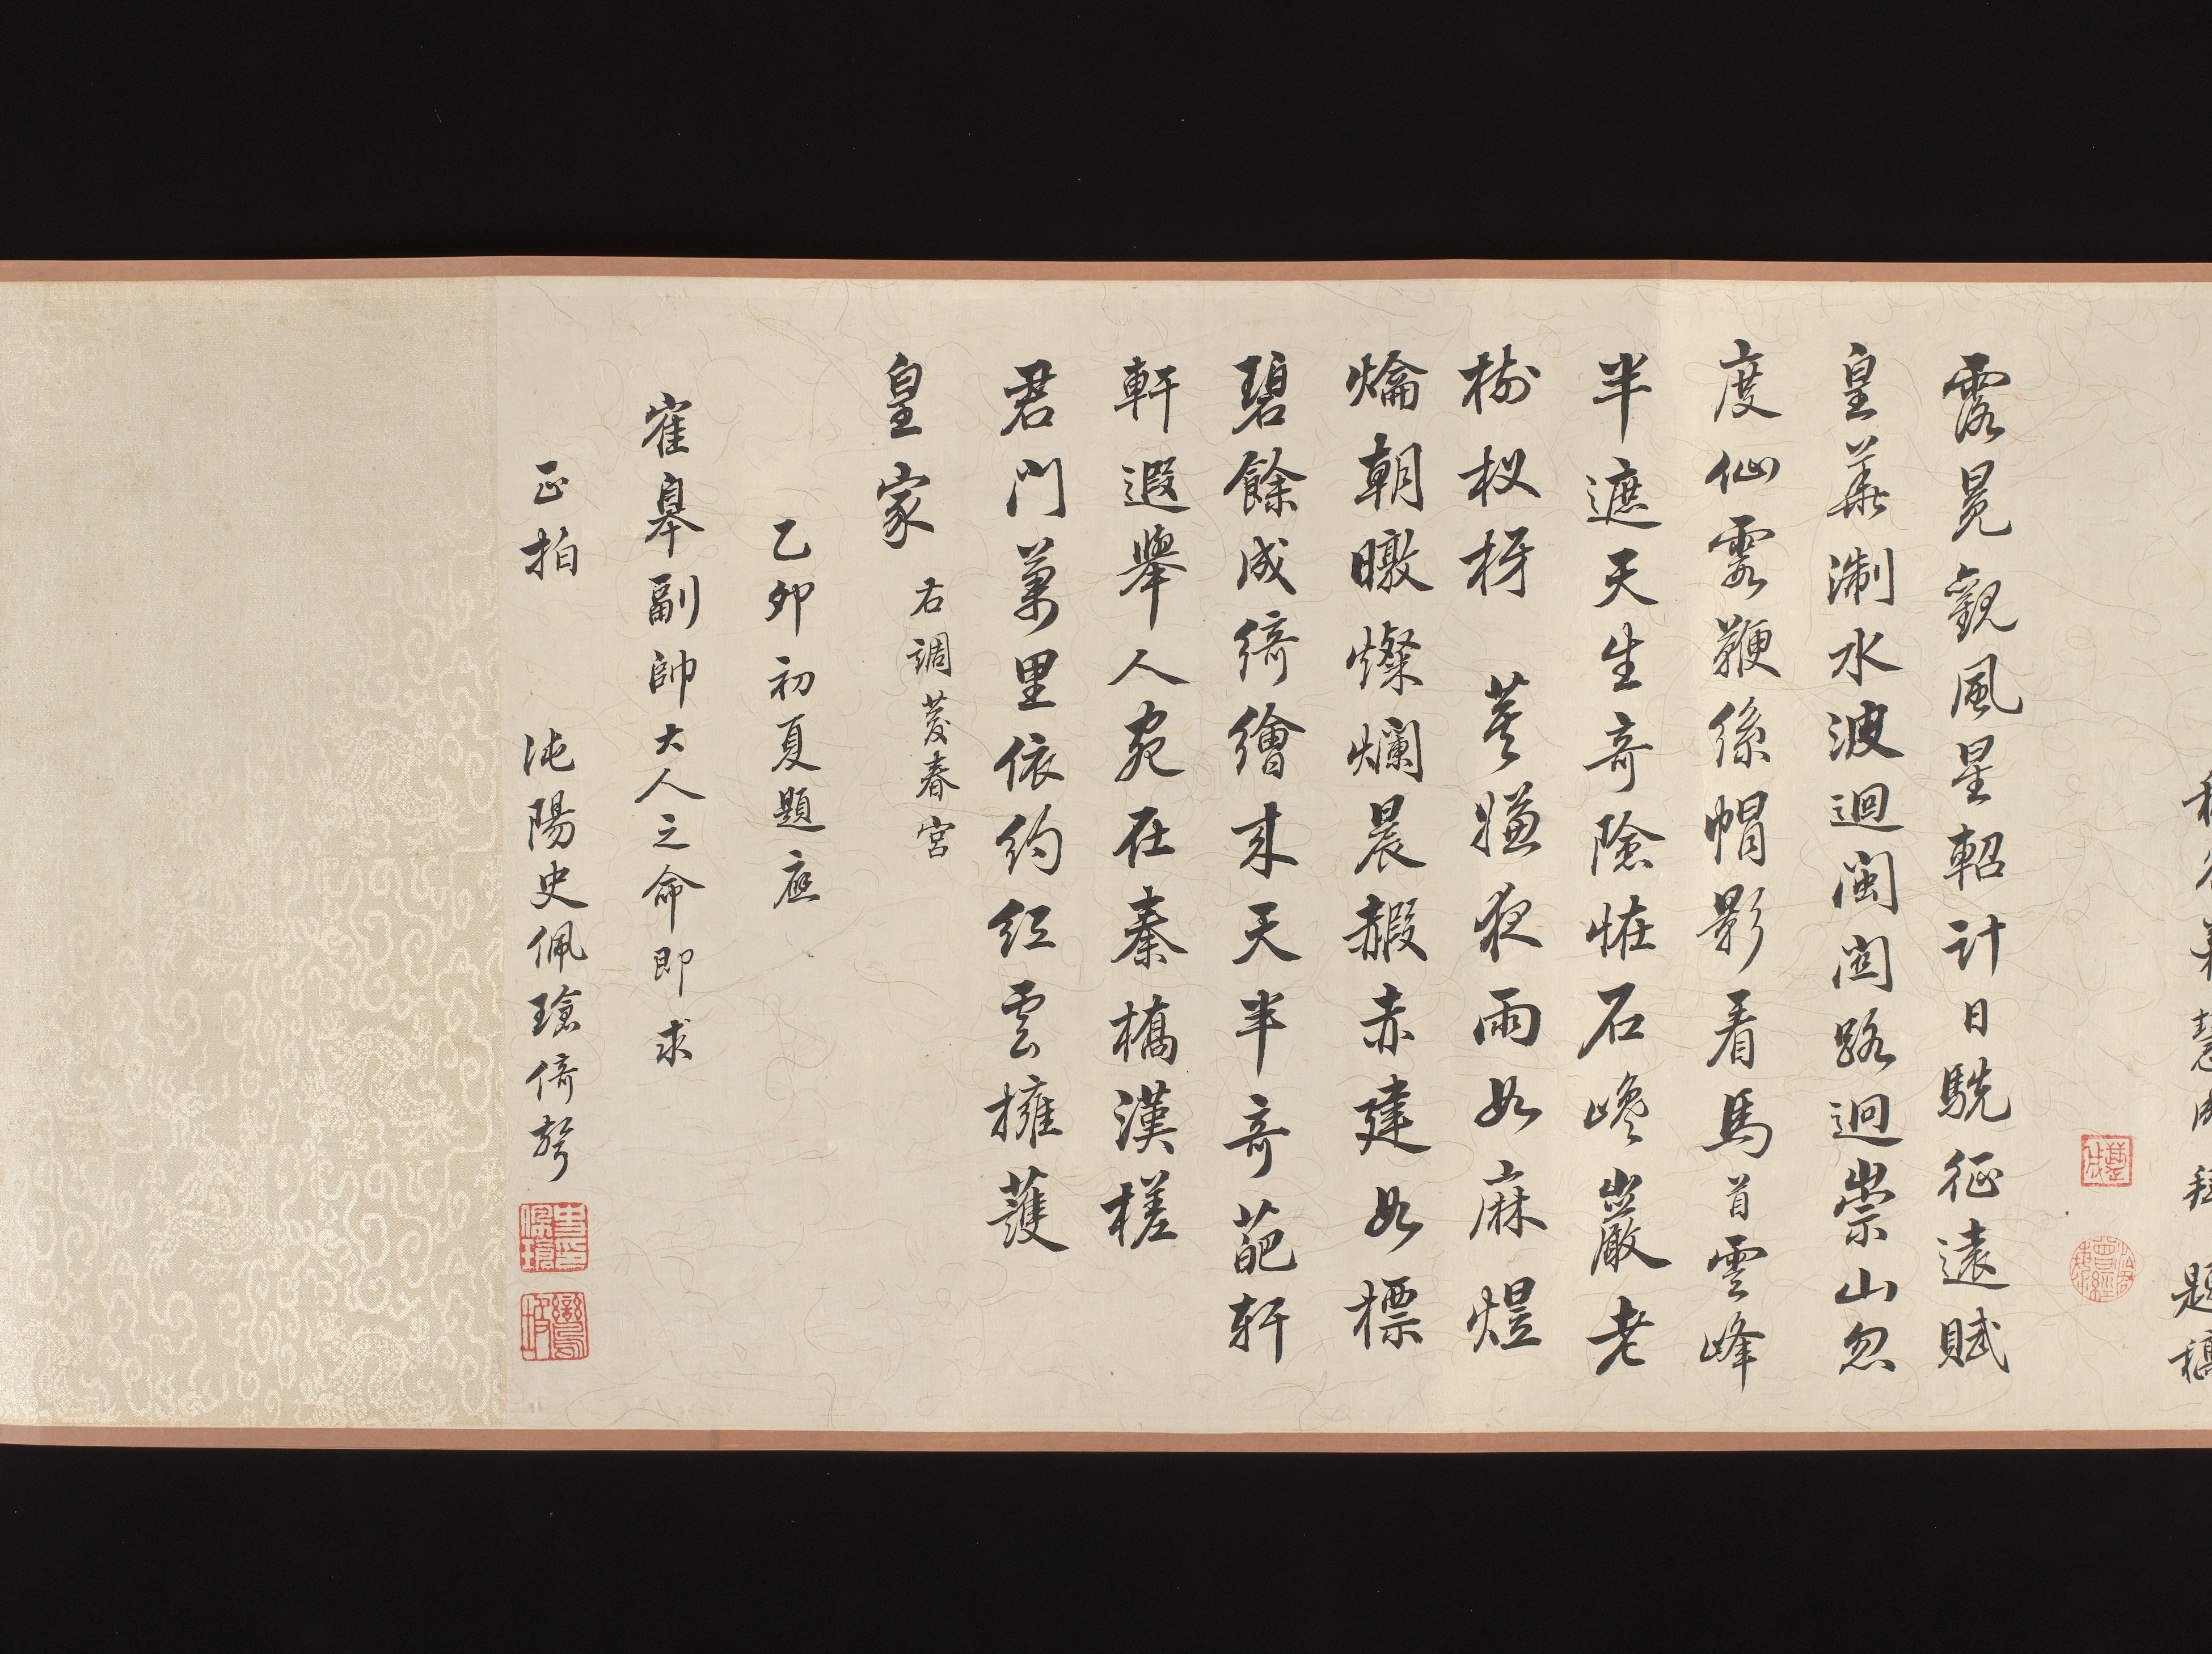 題橋
露冕觀風星軺計日駪征遠賦
皇華淛水波迴閩關路迥崇山忽
度仙霞鞭絲帽影看馬首雲峰
半遮天生奇險恠石巉巖老
樹杈枒 昔嫌夜雨如麻煜
爚朝暾燦爛晨赮赤建如標
碧餘成綺繪來天半奇葩軒
軒遐舉人宛在秦橋漢槎
君門萬里依約紅雲擁護
皇家 右調慶春宮
乙卯初夏題應
崔皋副帥大人之命即求
正拍 沌陽史佩瑲倚聲